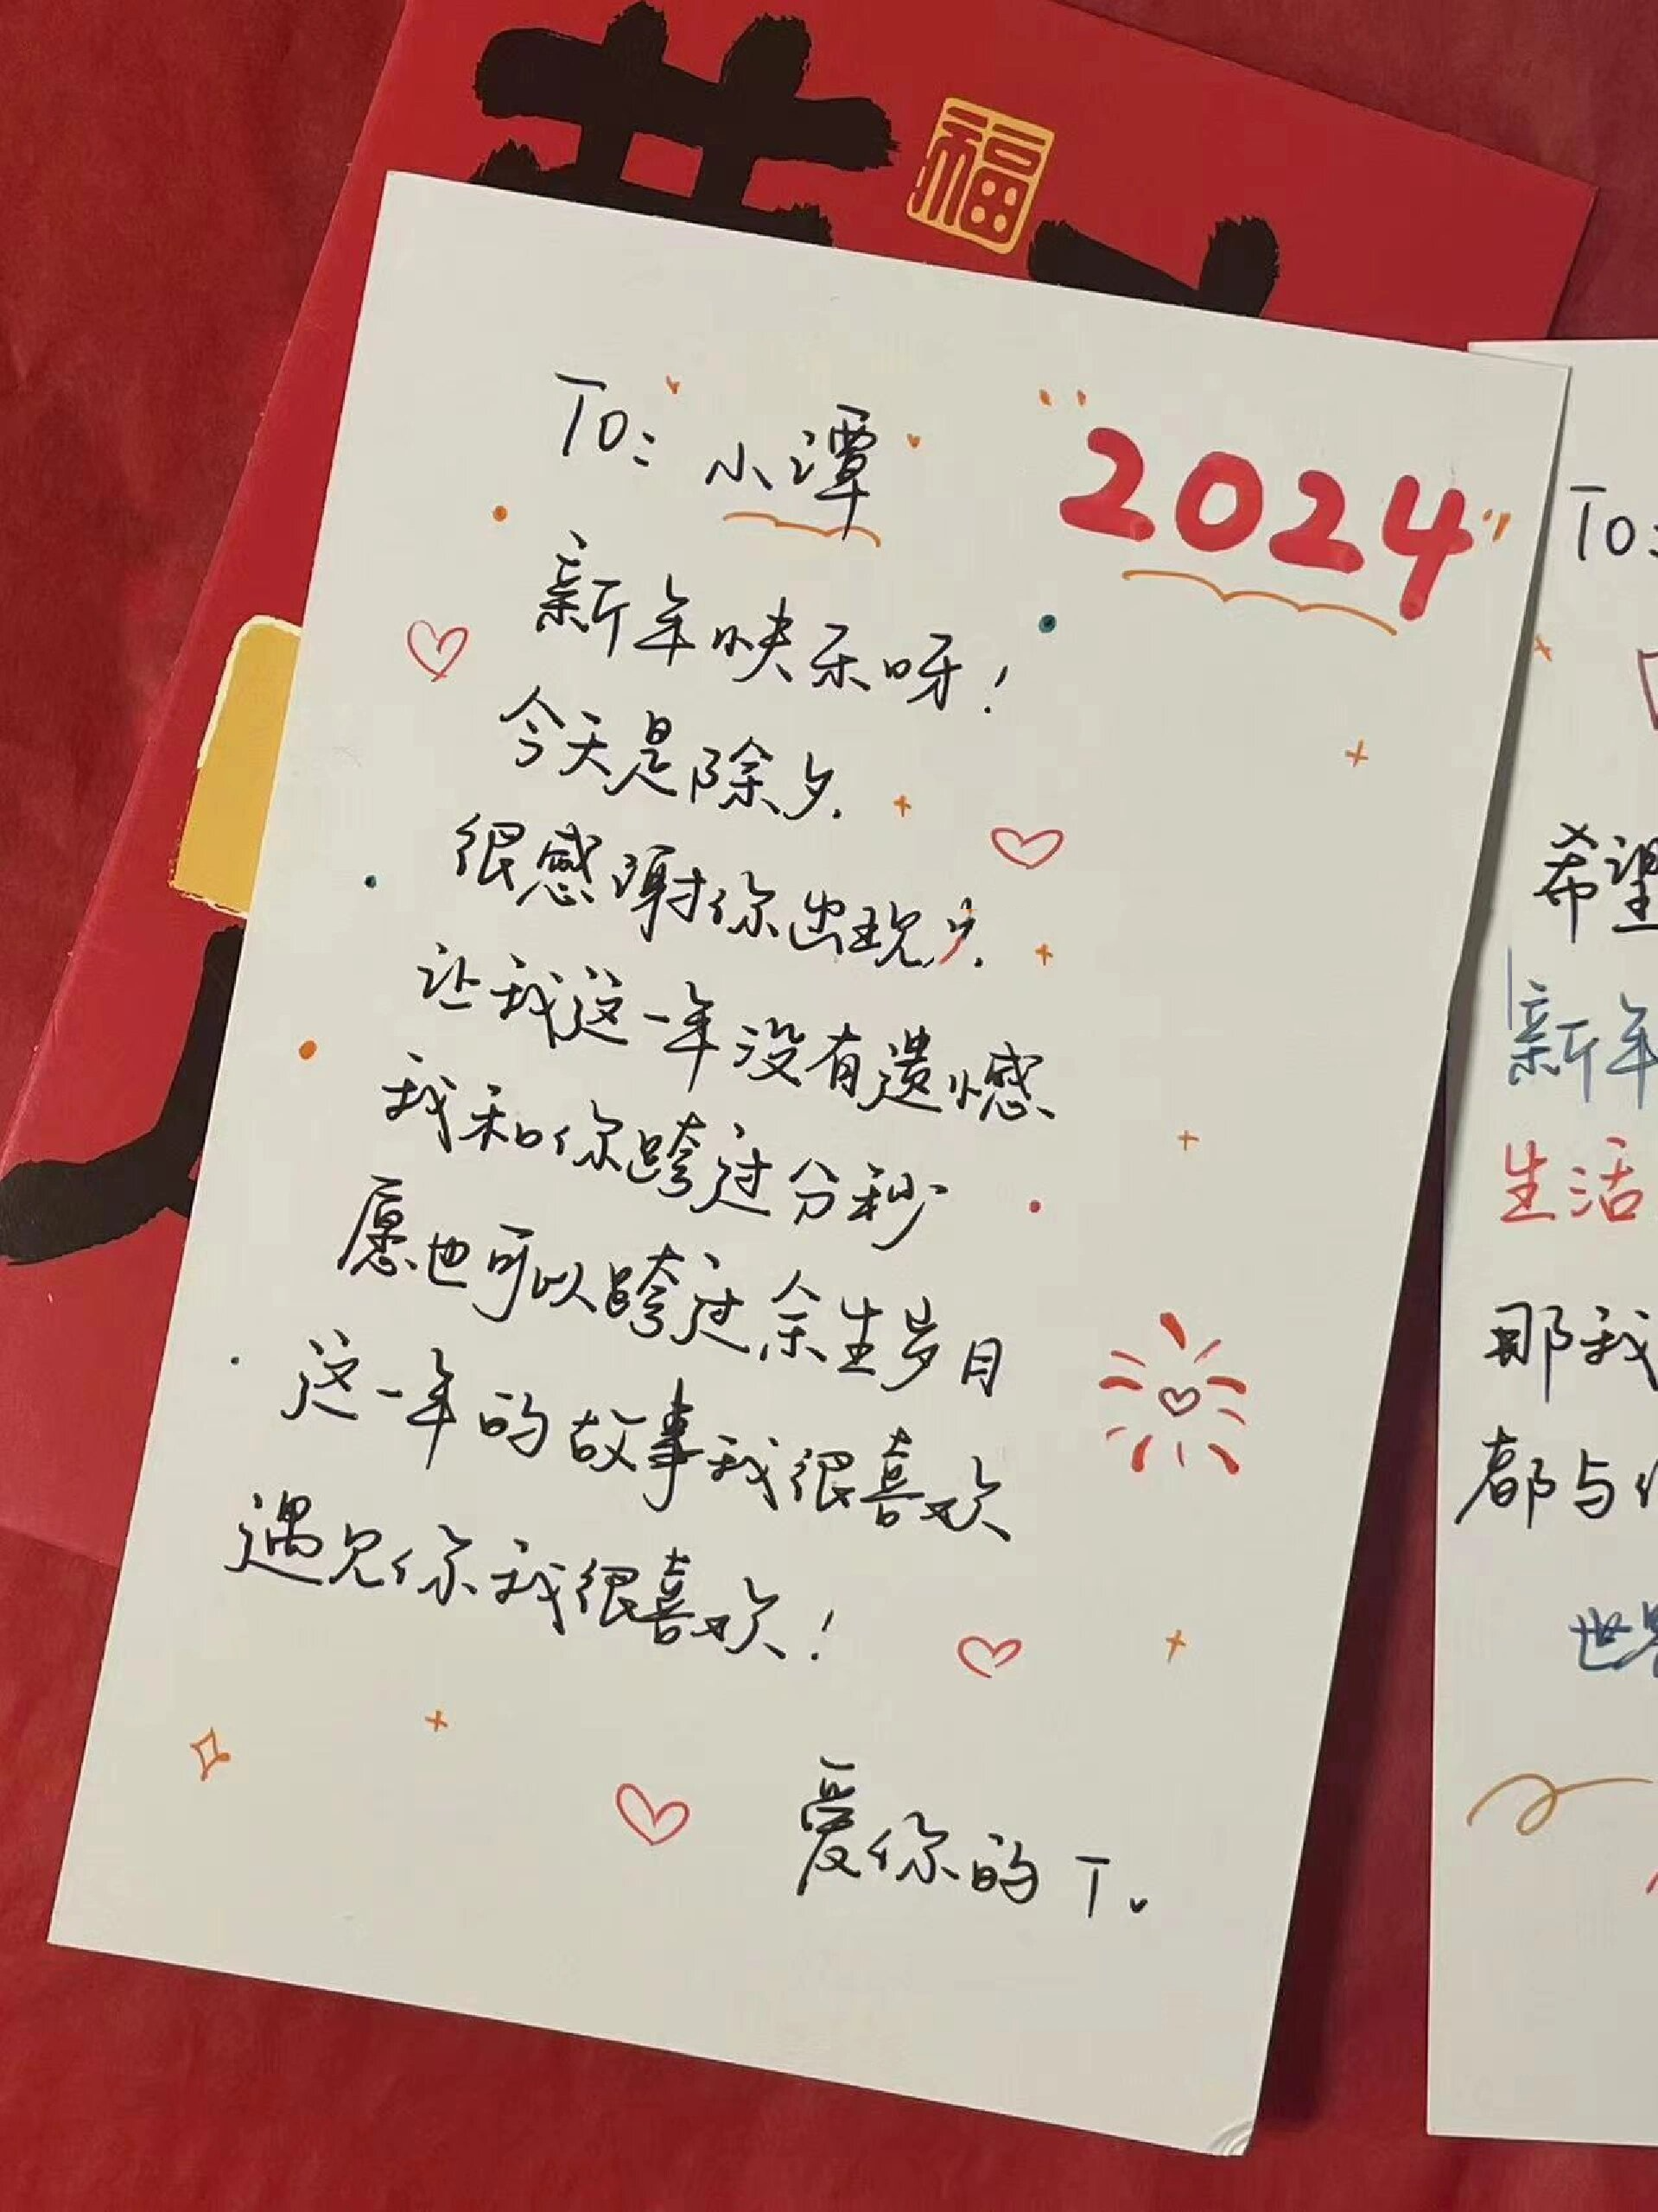 福
To: 小潭
2024
新年快乐呀!
今天是除夕.
很感谢你出现,
让我这一年没有遗憾
我和你跨过分秒
愿也可以跨过余生岁月
这一年的故事我很喜欢
遇见你我很喜欢!
爱你的 T.
To:
希望
新年
生活
那我
都与
世界